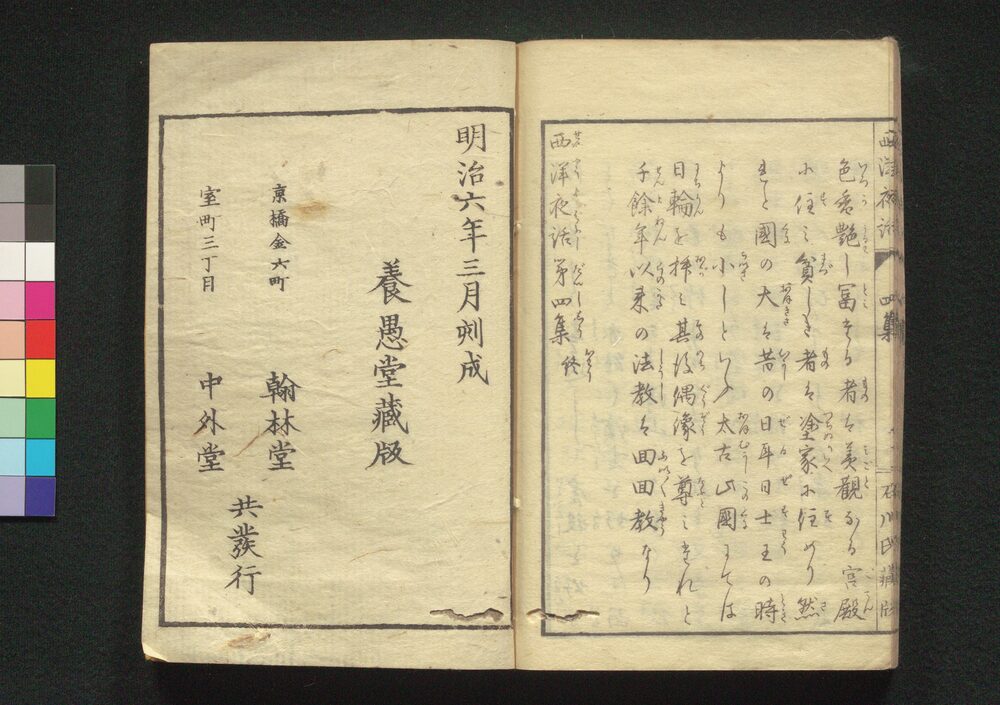 西洋夜話 四集 石川氏藏版
色愛艶し冨する者は美觀なる宮殿
に住み貧しき者は塗家に住めり然
れと國の大は昔の日耳日士王の時
よりも小しといふ太古此國にては
日輪を拝み其後偶像を尊みたれと
千餘年以来の法教は回回教なり
西洋夜話第四集終
明治六年三月刻成
養愚堂藏版
京橋金六町 翰林堂
室町三丁目 中外堂
共發行